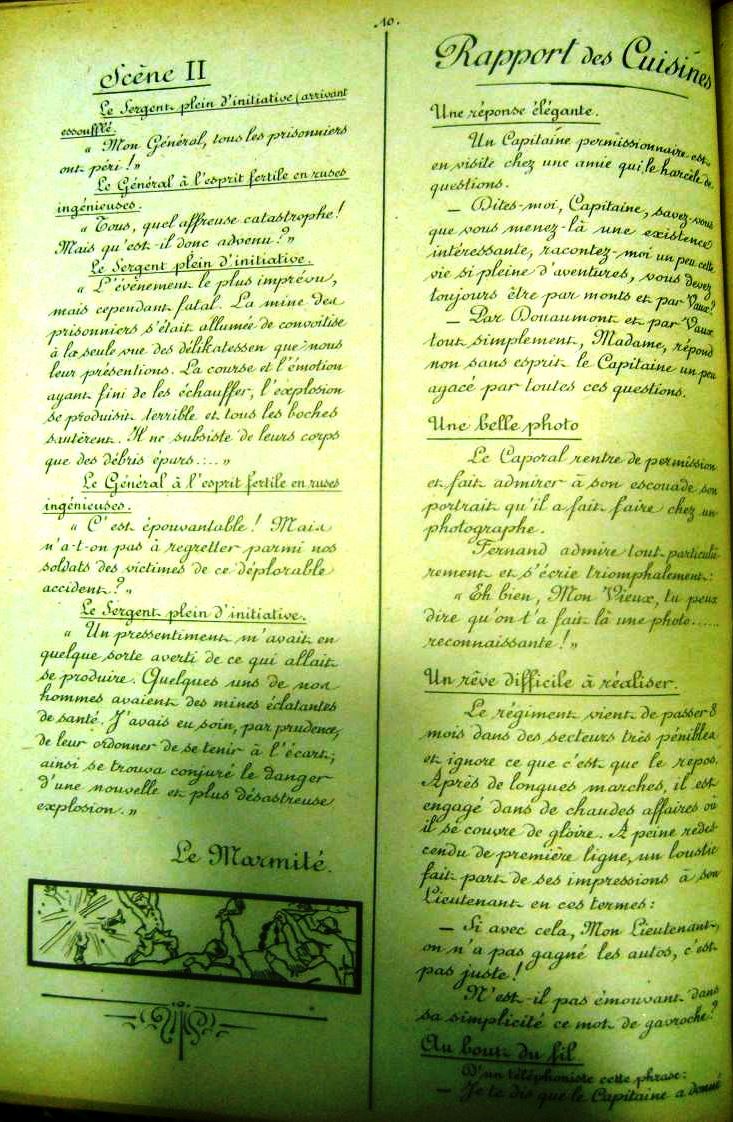 10.
Scène II
Le Sergent plein d'initiative (arrivant
essoufflé.
« Mon Général, tous les prisonniers
ont péri ! »
Le Général à l'esprit fertile en ruses
ingénieuses.
« Tous, quel affreuse catastrophe !
Mais qu'est-il donc advenu ? »
Le Sergent plein d'initiative.
« L'événement le plus imprévu,
mais cependant fatal. La mine des
prisonniers s'était allumée de convoitise
à la seule vue des délikatessen que nous
leur présentions. La course et l'émotion
ayant fini de les échauffer, l'explosion
se produisit terrible et tous les boches
sautèrent. Il ne subsiste de leurs corps
que des débris épars..... »
Le Général à l'esprit fertile en ruses
ingénieuses.
« C'est épouvantable ! Mais
n'a-t-on pas à regretter parmi nos
soldats des victimes de ce déplorable
accident ? »
Le Sergent plein d'initiative.
« Un pressentiment m'avait en
quelque sorte averti de ce qui allait
se produire. Quelques uns de nos
hommes avaient des mines éclatantes
de santé. J'avais eu soin, par prudence,
de leur ordonner de se tenir à l'écart ;
ainsi se trouva conjuré le danger
d'une nouvelle et plus désastreuse
explosion. »
Le Marmité.
Rapport des Cuisines
Une réponse élégante.
Un Capitaine permissionnaire est
en visite chez une amie qui le harcèle de
questions.
— Dites-moi, Capitaine, savez-vous
que vous menez-là une existence
intéressante, racontez-moi un peu cette
vie si pleine d'aventures, vous devez
toujours être par monts et par Vaux ?
— Par Douaumont et par Vaux
tout simplement, Madame, répond
non sans esprit le Capitaine un peu
agacé par toutes ces questions.
Une belle photo
Le Caporal rentre de permission
et fait admirer à son escouade son
portrait qu'il a fait faire chez un
photographe.
Fernand admire tout particuliè
rement et s'écrie triomphalement :
« Eh bien, Mon Vieux, tu peux
dire qu'on t'a fait là une photo......
reconnaissante ! »
Un rêve difficile à réaliser.
Le régiment vient de passer 8
mois dans des secteurs très pénibles
et ignore ce que c'est que le repos.
Après de longues marches, il est
engagé dans de chaudes affaires où
il se couvre de gloire. A peine redes
cendu de première ligne, un loustic
fait part de ses impressions à son
Lieutenant en ces termes :
— Si avec cela, Mon Lieutenant,
on n'a pas gagné les autos, c'est
pas juste !
N'est-il pas émouvant dans
sa simplicité ce mot de gavroche ?
Au bout du fil
D'un téléphoniste cette phrase :
— Je te dis que le Capitaine a donné